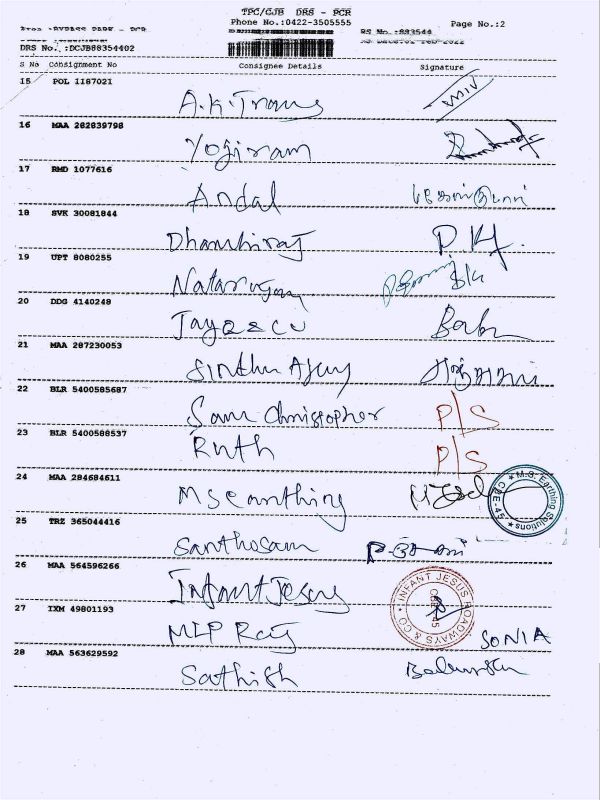 TPC/CJB DRS - PCR
Phone No.:0422-3505555
Page No.:2
RS No.:883544
DRS No. :DCJB88354402
S No Consignment No Consignee Details Signature
15 POL 1187021
A.K.Trans
16 MAA 282839798
Yojiram
17 RMD 1077616
Andal
18 SVK 30081844
Dhanbiraj P.H.
19 UPT 8080255
Natarajan
20 DDG 4140248
Jay Babu
21 MAA 287230053
Sindhu Ajay
22 BLR 5400585687
Sam Christopher P/S
23 BLR 5400588537
Ruth P/S
24 MAA 284684611
M S earthing
M.S. Earthing Solutions CBE-45
25 TRZ 365044416
Santhosam
26 MAA 564596266
Infant Jesus
INFANT JESUS ROADWAYS & CO CBE-45
27 IXM 49801193
MLP Raj SONIA
28 MAA 563629592
Sathish